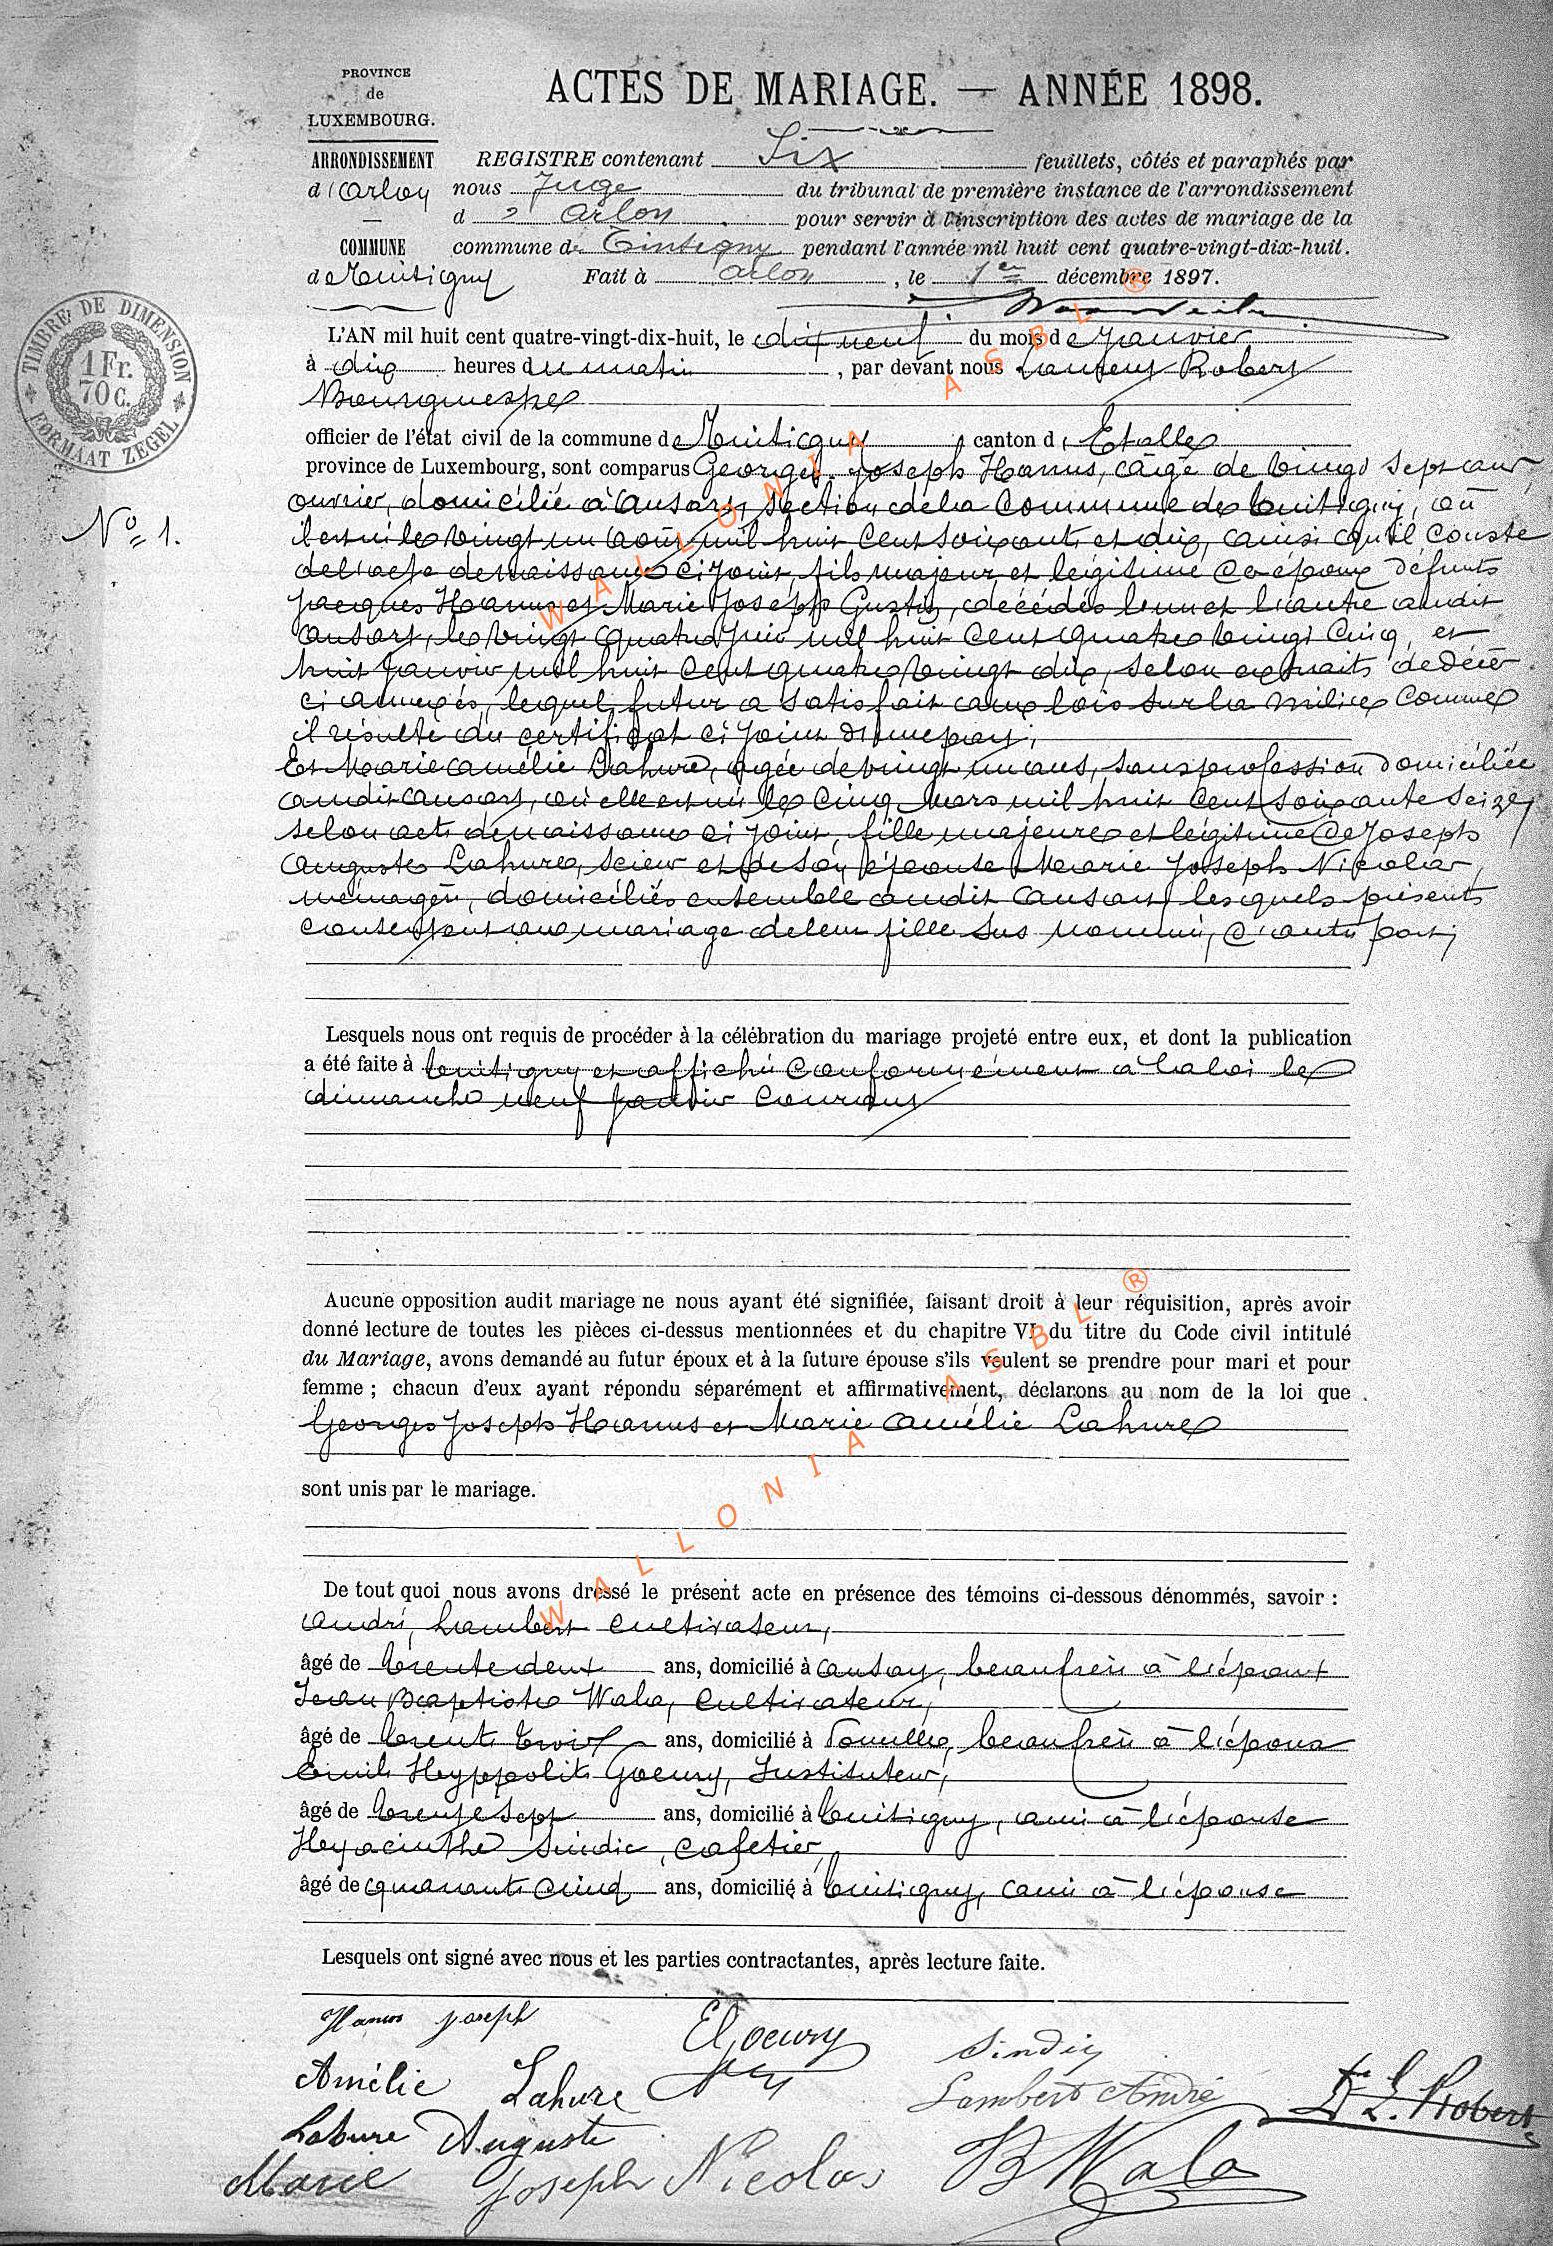 PROVINCE
de
LUXEMBOURG.
ACTES DE MARIAGE. — ANNÉE 1898.
ARRONDISSEMENT
d'Arlon
COMMUNE
de Tintigny
REGISTRE contenant Six feuillets, côtés et paraphés par
nous Juge du tribunal de première instance de l'arrondissement
d'Arlon pour servir à l'inscription des actes de mariage de la
commune de Tintigny pendant l'année mil huit cent quatre-vingt-dix-huit.
Fait à Arlon, le 1er décembre 1897.
TIMBRE DE DIMENSION
1 Fr.
70 C.
FORMAAT ZEGEL
L'AN mil huit cent quatre-vingt-dix-huit, le dix neuf du mois de Janvier
à dix heures du matin, par devant nous Laurent Robert
Bourgmestre
officier de l'état civil de la commune de Tintigny, canton d'Etalle
province de Luxembourg, sont comparus Georges Joseph Hanus, âgé de vingt sept ans,
No 1.
ouvrier, domicilié à Ansart, section de la Commune de Tintigny, où
il est né le vingt un août mil huit cent soixante et dix, ainsi qu'il conste
de l'acte de naissance ci joint, fils majeur et légitime des époux défunts
Jacques Hanus et Marie Joseph Gustin, décédés l'un et l'autre audit
Ansart, le vingt quatre Juin mil huit cent quatre vingt cinq, et
huit Janvier mil huit cent quatre vingt dix, selon extraits de décès
ci annexés, lequel futur a satisfait aux lois sur la milice comme
il résulte du certificat ci joint d'une part;
Et Marie Amélie Lahure, agée de vingt un ans, sans profession domiciliée
audit Ansart, où elle est née le cinq Mars mil huit cent soixante seize,
selon acte de naissance ci joint, fille majeure et légitime de Joseph
Auguste Lahure, scieur et de son épouse Marie Joseph Nicolas,
ménagère, domiciliés ensemble audit Ansart, lesquels présents
consentent au mariage de leur fille sus nommée, d'autre part;
Lesquels nous ont requis de procéder à la célébration du mariage projeté entre eux, et dont la publication
a été faite à Tintigny et affichée conformément à la loi le
dimanche neuf janvier courant
Aucune opposition audit mariage ne nous ayant été signifiée, faisant droit à leur réquisition, après avoir
donné lecture de toutes les pièces ci-dessus mentionnées et du chapitre VI du titre du Code civil intitulé
du Mariage, avons demandé au futur époux et à la future épouse s'ils veulent se prendre pour mari et pour
femme ; chacun d'eux ayant répondu séparément et affirmativement, déclarons au nom de la loi que
Georges Joseph Hanus et Marie Amélie Lahure
sont unis par le mariage.
De tout quoi nous avons dressé le présent acte en présence des témoins ci-dessous dénommés, savoir :
André, Lambert cultivateur,
âgé de trente deux ans, domicilié à Ansart, beau frère à l'époux
Jean Baptiste Wala, cultivateur,
âgé de trente trois ans, domicilié à beau frère à l'époux
Emile Hyppolite Goeury, Instituteur,
âgé de trente sept ans, domicilié à Tintigny, ami à l'épouse
Hyacinthe Sindic, cafetier,
âgé de quarante cinq ans, domicilié à Tintigny, ami à l'épouse
Lesquels ont signé avec nous et les parties contractantes, après lecture faite.
Hanus Joseph
EGoeury
Sindic
Amélie Lahure
Lambert André
L. Robert
Lahure Auguste
Marie Joseph Nicolas
JB Wala
WALLONIA ASBL ®
WALLONIA ASBL ®